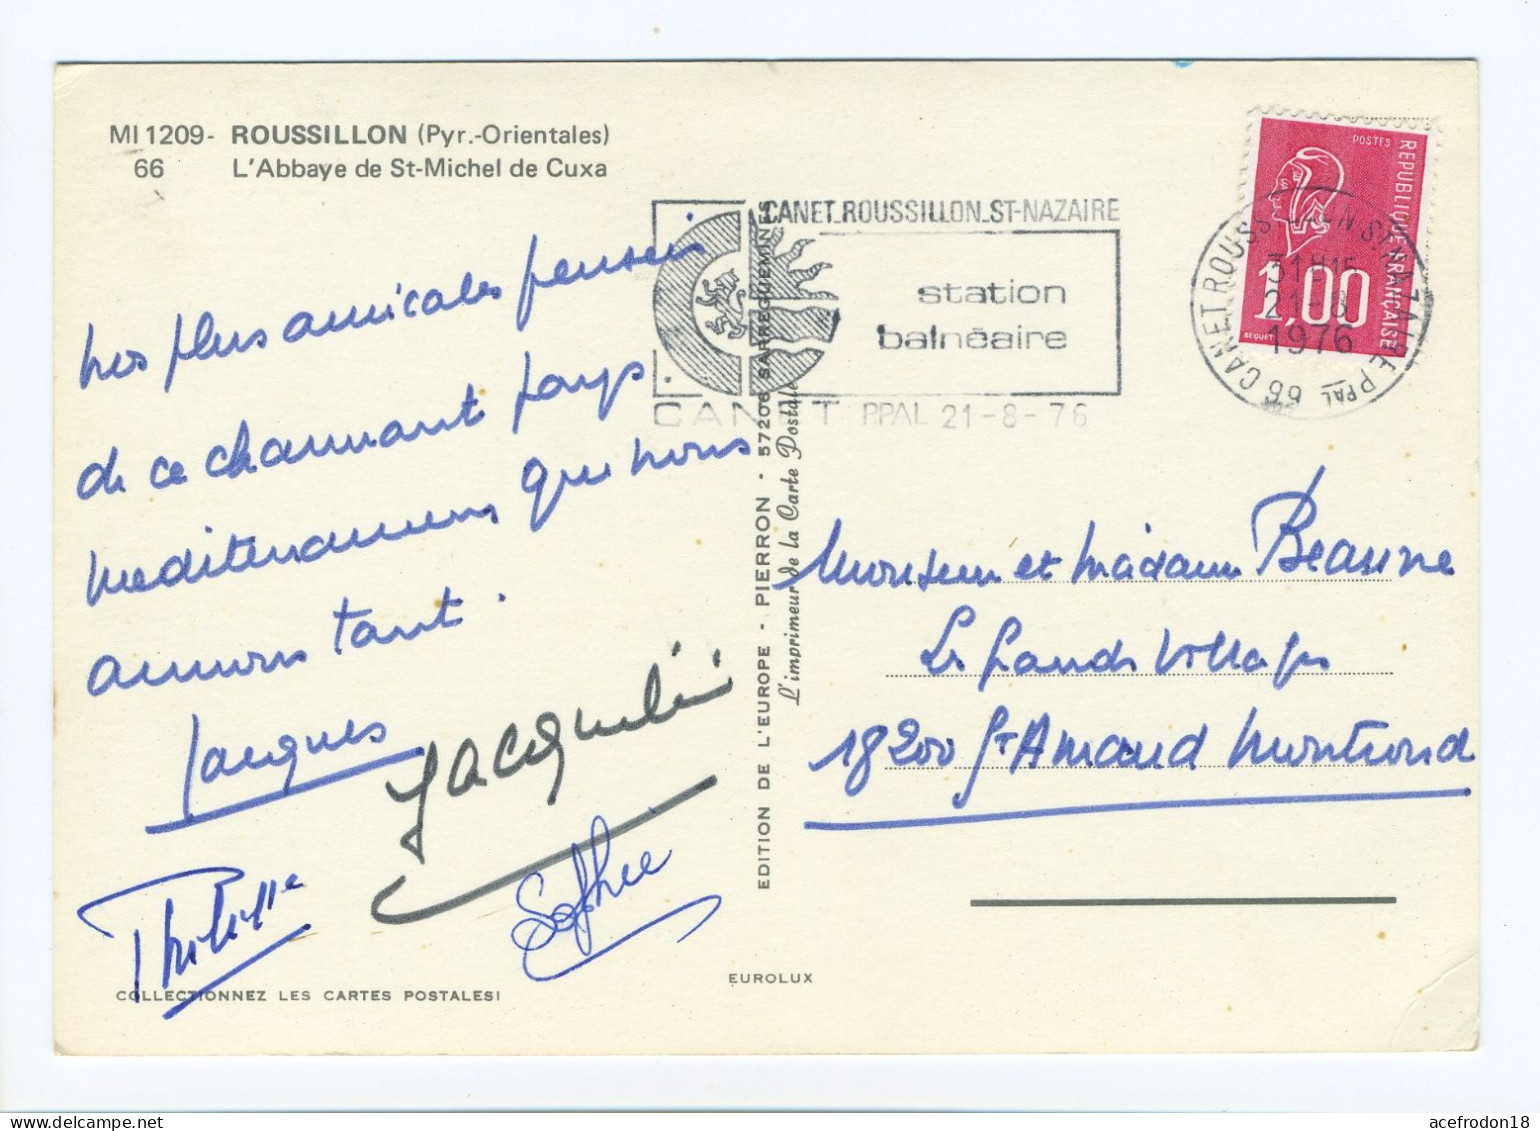 MI 1209- ROUSSILLON (Pyr.-Orientales)
66 L'Abbaye de St-Michel de Cuxa
Nos plus amicales pensées
de ce charmant pays
méditerranéen que nous
aimons tant.
Jacques
Jacqueline
Sophie
COLLECTIONNEZ LES CARTES POSTALES!
EUROLUX
EDITION DE L'EUROPE - PIERRON - 57206 SARREGUEMINES
L'imprimeur de la Carte Postale
CANET_ROUSSILLON_ST-NAZAIRE
station
balnéaire
CANET PPAL 21-8-76
POSTES
REPUBLIQUE FRANÇAISE
1,00
BEQUET
66 CANET ROUSSILLON ST NAZAIRE PPAL
21-8
1976
Monsieur et Madame Beaune
Les Grands Villages
18200 St Amand Montrond
acefrodon18